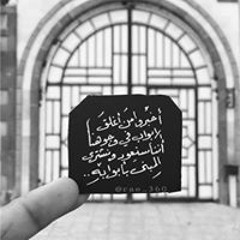 أخبروا من أغلق
الأبواب في وجوهنا
أننا سنعود ونشتري
المبنى بأبوابه ..
@rao_360